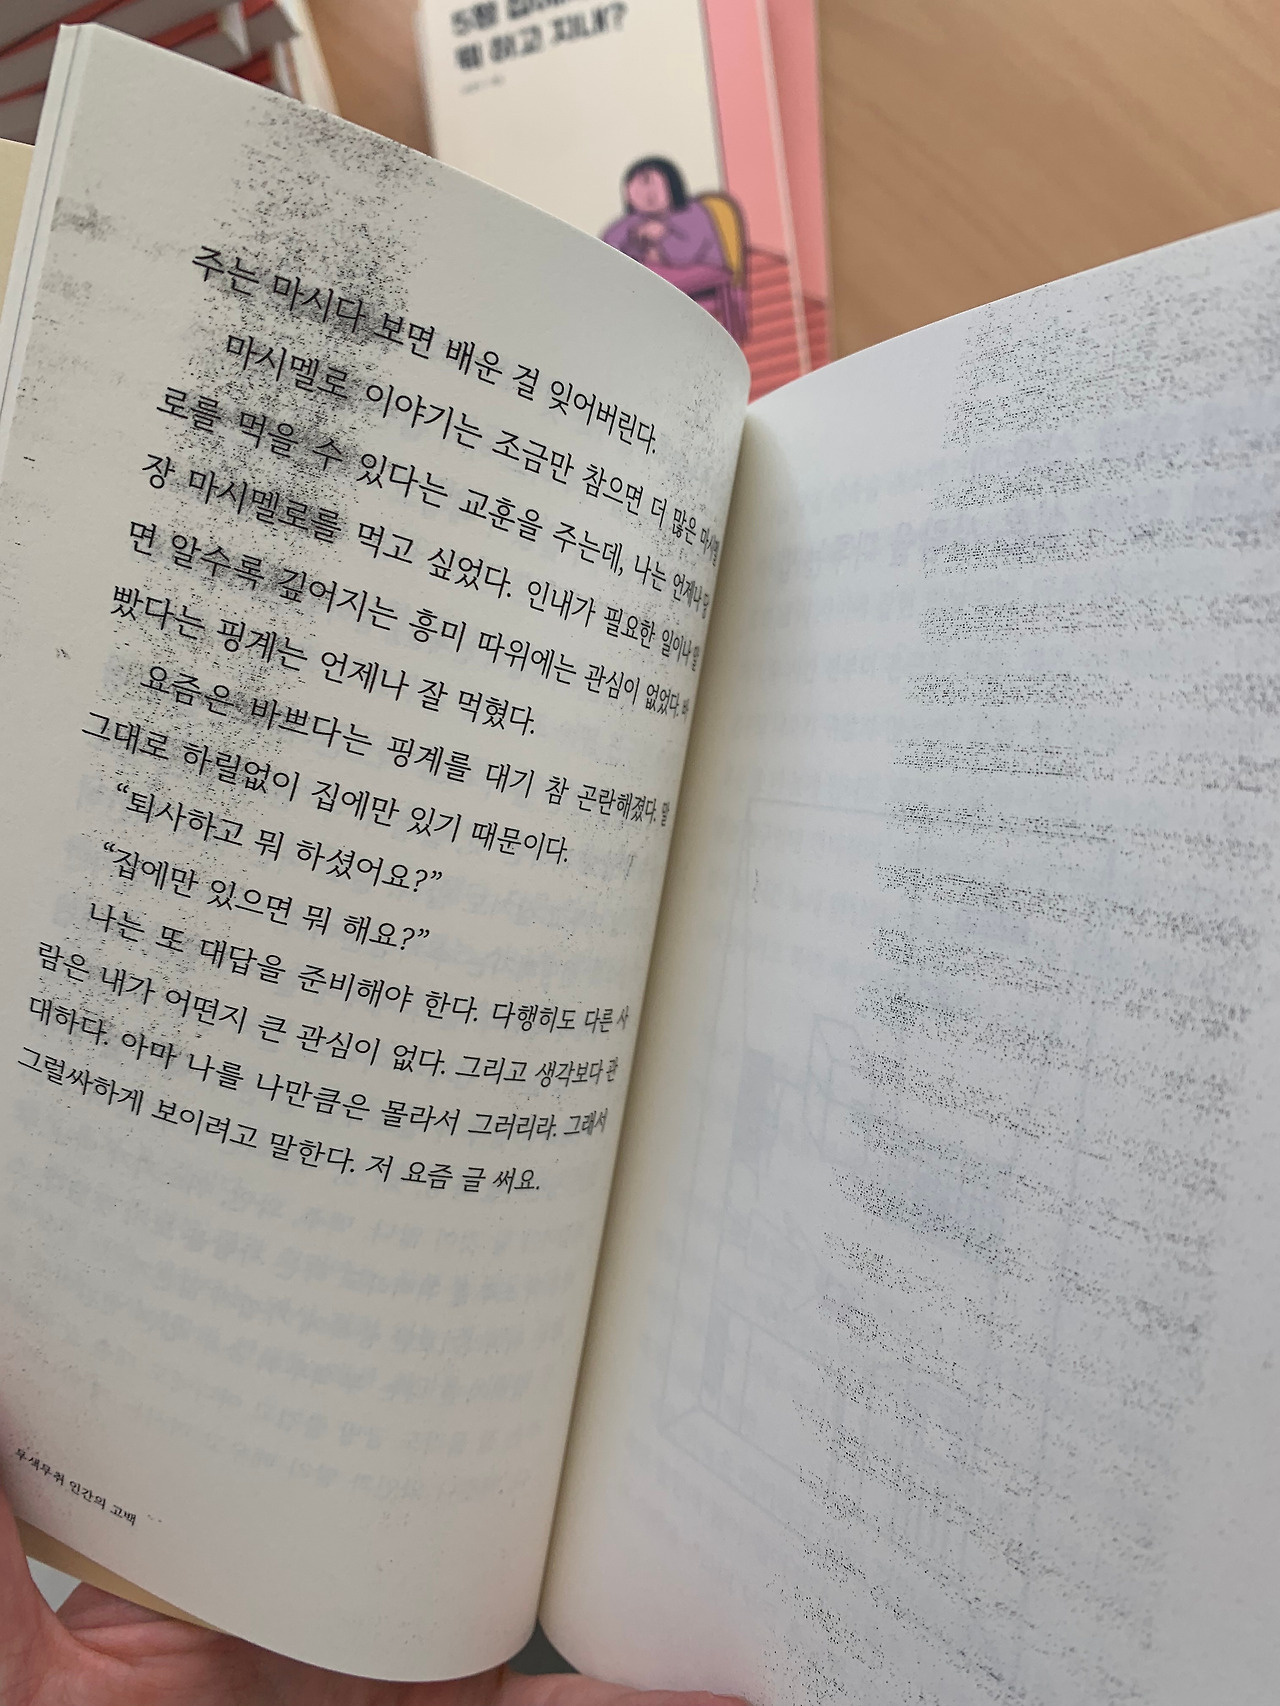 뭐 하고 지내?
주는 마시다 보면 배운 걸 잊어버린다.
마시멜로 이야기는 조금만 참으면 더 많은 마시멜
로를 먹을 수 있다는 교훈을 주는데, 나는 언제나 당
장 마시멜로를 먹고 싶었다. 인내가 필요한 일이나 알
면 알수록 깊어지는 흥미 따위에는 관심이 없었다. 바
빴다는 핑계는 언제나 잘 먹혔다.
요즘은 바쁘다는 핑계를 대기 참 곤란해졌다. 말
그대로 하릴없이 집에만 있기 때문이다.
“퇴사하고 뭐 하셨어요?”
“집에만 있으면 뭐 해요?”
나는 또 대답을 준비해야 한다. 다행히도 다른 사
람은 내가 어떤지 큰 관심이 없다. 그리고 생각보다 관
대하다. 아마 나를 나만큼은 몰라서 그러리라. 그래서
그럴싸하게 보이려고 말한다. 저 요즘 글 써요.
무색무취 인간의 고백